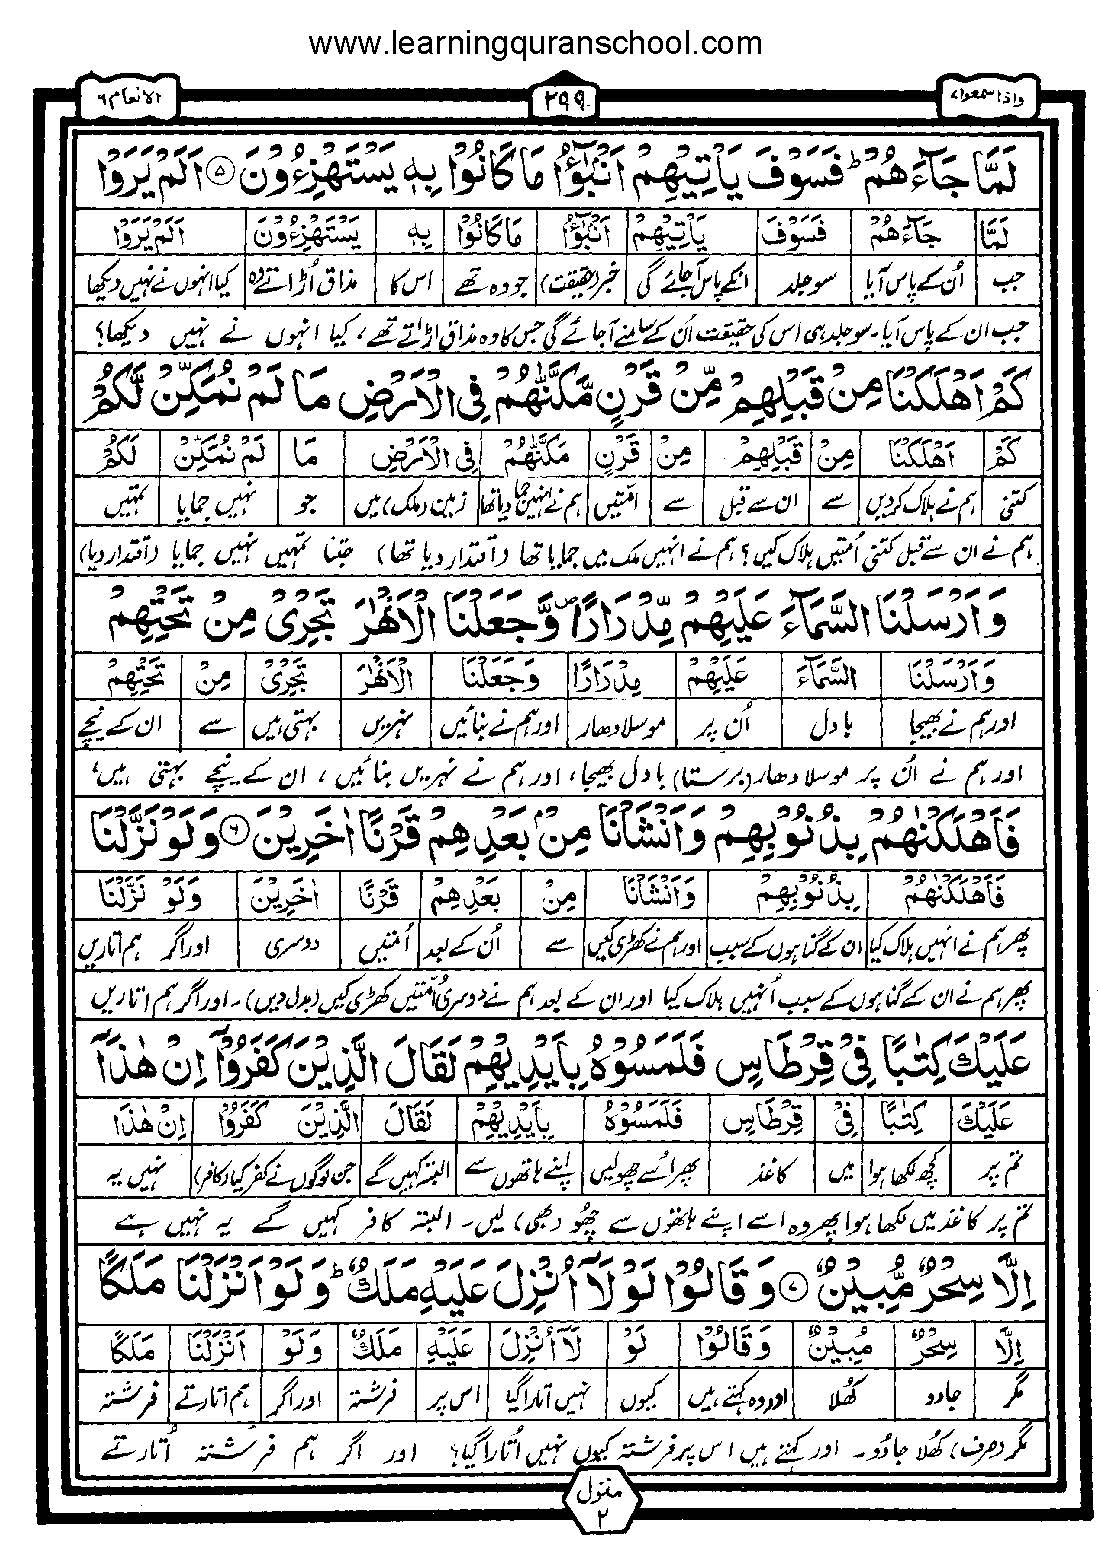 www.learningquranschool.com
واذا سمعوا۷ ۲۹۹ الانعام۶
لَمَّا جَآءَهُمْ ؕ فَسَوْفَ يَاْتِيْهِمْ اَنْۢبٰٓؤُا مَا كَانُوْا بِهٖ يَسْتَهْزِءُوْنَ ۵ اَلَمْ يَرَوْا
لَمَّا جَآءَهُمْ فَسَوْفَ يَاْتِيْهِمْ اَنْۢبٰٓؤُا مَا كَانُوْا بِهٖ يَسْتَهْزِءُوْنَ اَلَمْ يَرَوْا
جب اُن کے پاس آیا سو جلد انکے پاس آجائے گی خبر (حقیقت) جو وہ تھے اس کا مذاق اُڑاتے وہ کیا انہوں نے نہیں دیکھا
جب ان کے پاس آیا۔ سو جلد ہی اس کی حقیقت اُن کے سامنے آجائے گی جس کا وہ مذاق اڑاتے تھے، کیا انہوں نے نہیں دیکھا؟
كَمْ اَهْلَكْنَا مِنْ قَبْلِهِمْ مِّنْ قَرْنٍ مَّكَّنّٰهُمْ فِى الْاَرْضِ مَا لَمْ نُمَكِّنْ لَّكُمْ
كَمْ اَهْلَكْنَا مِنْ قَبْلِهِمْ مِنْ قَرْنٍ مَكَّنّٰهُمْ فِى الْاَرْضِ مَا لَمْ نُمَكِّنْ لَكُمْ
کتنی ہم نے ہلاک کردیں سے ان سے قبل سے اُمتیں ہم نے انہیں جما دیا تھا زمین (ملک) میں جو نہیں جمایا تمہیں
ہم نے ان سے قبل کتنی اُمتیں ہلاک کیں؟ ہم نے انہیں ملک میں جمایا تھا (اقتدار دیا تھا) جتنا تمہیں نہیں جمایا (اقتدار دیا)
وَاَرْسَلْنَا السَّمَآءَ عَلَيْهِمْ مِّدْرَارًا ۪ وَّجَعَلْنَا الْاَنْهٰرَ تَجْرِىْ مِنْ تَحْتِهِمْ
وَاَرْسَلْنَا السَّمَآءَ عَلَيْهِمْ مِدْرَارًا وَجَعَلْنَا الْاَنْهٰرَ تَجْرِىْ مِنْ تَحْتِهِمْ
اور ہم نے بھیجا بادل اُن پر موسلا دھار اور ہم نے بنائیں نہریں بہتی ہیں سے ان کے نیچے
اور ہم نے اُن پر موسلا دھار (برستا) بادل بھیجا، اور ہم نے نہریں بنائیں، ان کے نیچے بہتی ہیں،
فَاَهْلَكْنٰهُمْ بِذُنُوْبِهِمْ وَاَنْشَاْنَا مِنْۢ بَعْدِهِمْ قَرْنًا اٰخَرِيْنَ ۶ وَلَوْ نَزَّلْنَا
فَاَهْلَكْنٰهُمْ بِذُنُوْبِهِمْ وَاَنْشَاْنَا مِنْ بَعْدِهِمْ قَرْنًا اٰخَرِيْنَ وَلَوْ نَزَّلْنَا
پھر ہم نے انہیں ہلاک کیا ان کے گناہوں کے سبب اور ہم نے کھڑی کیں سے اُن کے بعد اُمتیں دوسری اور اگر ہم اتاریں
پھر ہم نے ان کے گناہوں کے سبب اُنہیں ہلاک کیا اور ان کے بعد ہم نے دوسری اُمتیں کھڑی کیں (بدل دیں)۔ اور اگر ہم اتاریں
عَلَيْكَ كِتٰبًا فِىْ قِرْطَاسٍ فَلَمَسُوْهُ بِاَيْدِيْهِمْ لَقَالَ الَّذِيْنَ كَفَرُوْٓا اِنْ هٰذَآ
عَلَيْكَ كِتٰبًا فِىْ قِرْطَاسٍ فَلَمَسُوْهُ بِاَيْدِيْهِمْ لَقَالَ الَّذِيْنَ كَفَرُوْٓا اِنْ هٰذَآ
تم پر کچھ لکھا ہوا میں کاغذ پھر اُسے چھولیں اپنے ہاتھوں سے البتہ کہیں گے جن لوگوں نے کفر کیا (کافر) نہیں یہ
تم پر کاغذ میں لکھا ہوا پھر وہ اسے اپنے ہاتھوں سے چھو (بھی) لیں۔ البتہ کافر کہیں گے یہ نہیں ہے
اِلَّا سِحْرٌ مُّبِيْنٌ ۷ وَقَالُوْا لَوْلَآ اُنْزِلَ عَلَيْهِ مَلَكٌ ؕ وَلَوْ اَنْزَلْنَا مَلَكًا
اِلَّا سِحْرٌ مُبِيْنٌ وَقَالُوْا لَوْ لَآ اُنْزِلَ عَلَيْهِ مَلَكٌ وَلَوْ اَنْزَلْنَا مَلَكًا
مگر جادو کھُلا اور وہ کہتے ہیں کیوں نہیں اتارا گیا اس پر فرشتہ اور اگر ہم اتارتے فرشتہ
مگر (صرف) کھلا جادو۔ اور کہتے ہیں اس پر فرشتہ کیوں نہیں اُتارا گیا؟ اور اگر ہم فرشتہ اُتارتے
منزل ۲